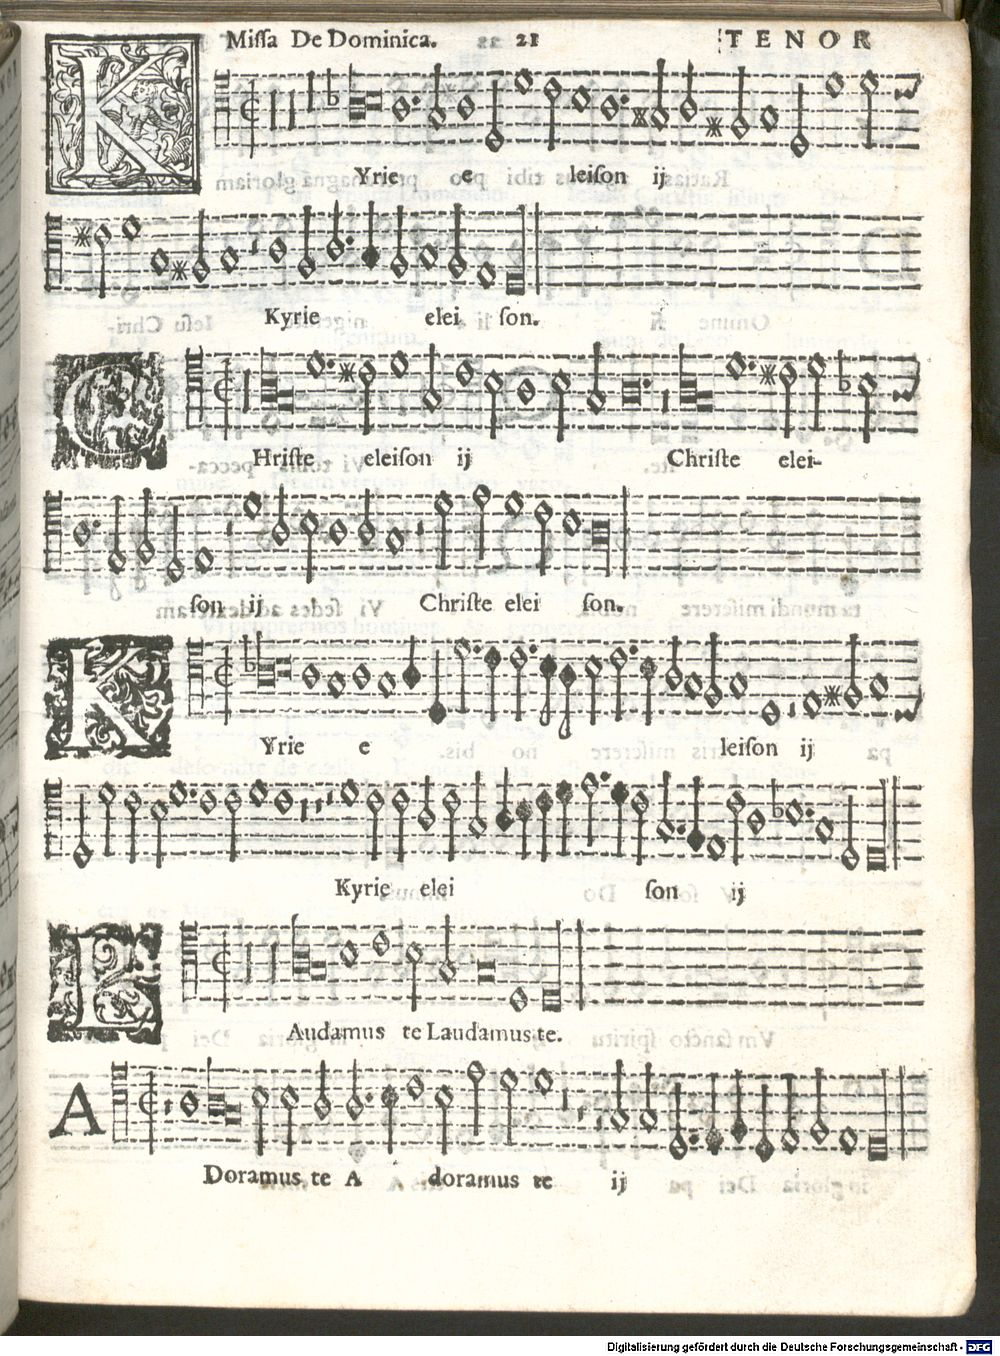 Missa De Dominica. 21 TENOR
KYrie e leison ij
Kyrie elei son.
CHriste eleison ij Christe elei-
son ij Christe elei son.
KYrie e leison ij
Kyrie elei son ij
LAudamus te Laudamus te.
ADoramus te A doramus te ij
Digitalisierung gefördert durch die Deutsche Forschungsgemeinschaft - DFG